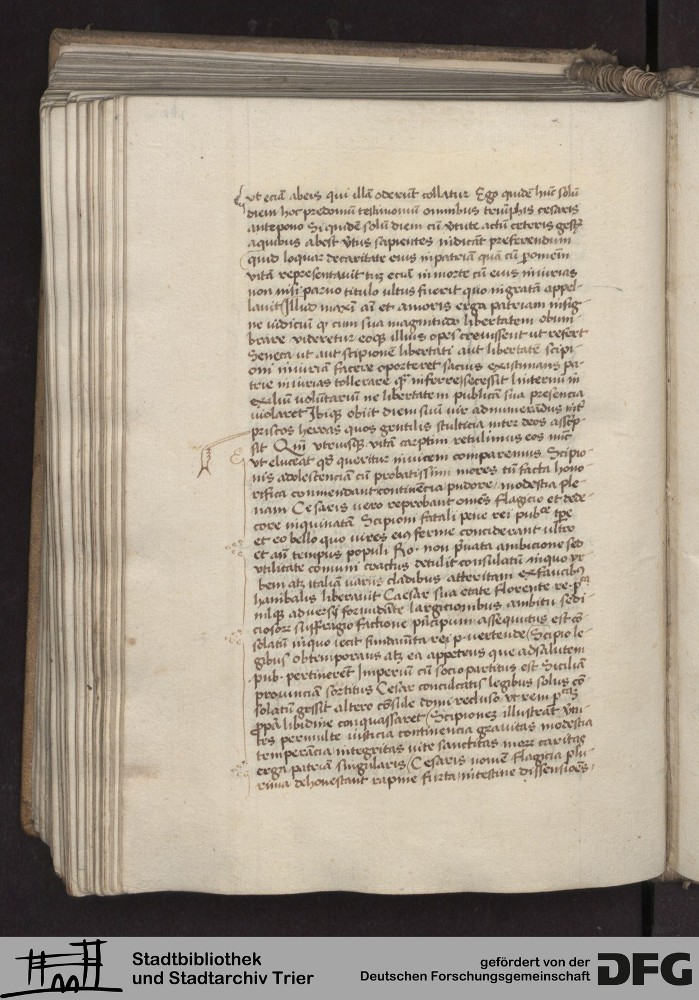 ut eciā abeis qui illā oderūt tollatur Ego quidē huic solū
diem hoc predomū testimoniū omnibus triūphis cesaris
antepono Si quidē solū diem cū v̄tute actū ceteris gestꝫ
aquibus abest v̄tus sapientes iudicāt preferendum
quid loquar decaritate eius inpatriā quā cū
vitā representauit tuꝫ eciā inmorte cū eius iniurias
non nisi paruo titulo ultus fuerit quo ingratā appel-
lauit Illud maxī aī et amoris erga patriam insig-
ne iudiciū ꝙ cum sua magnitudo libertatem obum-
brare videretur eoqꝫ illius opes creuissent ut refert
Seneca ut aut scipionē libertati aut libertatē scipi-
oni iniuriā facere oporteret sacius existimans pa-
trie iniurias tollerare qͣ inferre secessit linternū in
exiliū voluntariū ne libertatem publicā sua presencia
violaret Ibiqꝫ obiit diem suū vir adnumerādus int̄
priscos heroas quos gentilis stulticia inter deos
sit Qm̄ utriusqꝫ vitā carptim retulimus eos nūc
ut eluceat qd̄ queritur inuicem comparemus Scipio-
nis adolescenciā cū probatissimi mores tū facta hono-
rifica commendant continēcia pudore modestia ple-
nam Cesaris uero reprobant om̄es flagicio et dede-
core inquinatā Scipioni fatali pene rei pubᶜᵉ tp̄e
et eo bello quo uires eiꝰ ferme conciderant ultro
et an̄ tempus populi Ro. non p̄uata ambicione sed
utilitate comuni coactus detulit consulatū inquo vr-
bem atꝫ italiā uariis cladibus attritam ex faucibꝰ
hanibalis liberauit Caesar sua etate florente re. p.ᶜᵃ
nilqꝫ adu͛si formidāte largicionibus ambitu sedi-
ciosoꝝ suffragio factione pn̄cipum assequutus est cō-
solatū inquo iecit fundamēta rei p. uertende Scipio le-
gibus obtemporans atꝫ ea appetens que adsalutem
.pub. pertinerēt Imperiū cū socio partitus est Siciliā
prouinciā sortitus Cesar conculcatis legibus solus cō-
solatū gessit altero cōsule domi recluso ut rem p.ᶜᵃᵐ
ꝓpͥa libidine conquassaret Scipionem illustrāt v̄tu-
tes permulte iusticia continencia grauitas modestia
temperācia integritas uite sanctitas moꝝ caritas
erga patriā singularis Cesaris nomē flagicia plu-
rima dehonestant rapine furta intestine dissensiōes
Stadtbibliothek
und Stadtarchiv Trier
gefördert von der
Deutschen Forschungsgemeinschaft
DFG